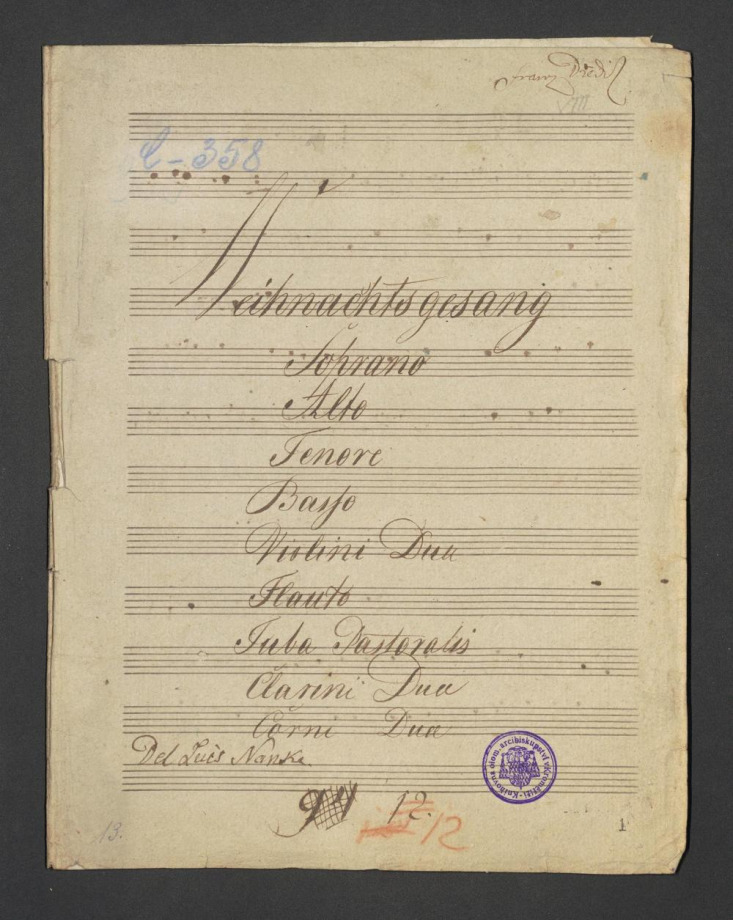 VIII
C-358
Weihnachtsgesang
Soprano
Alto
Tenore
Basso
Violini Dua
Flauto
Tuba Pastoralis
Clarini Dua
Corni Dua
Del Luis Nanke
Knihovna olom. arcibiskupství v Kroměříži
12.
12
13.
1